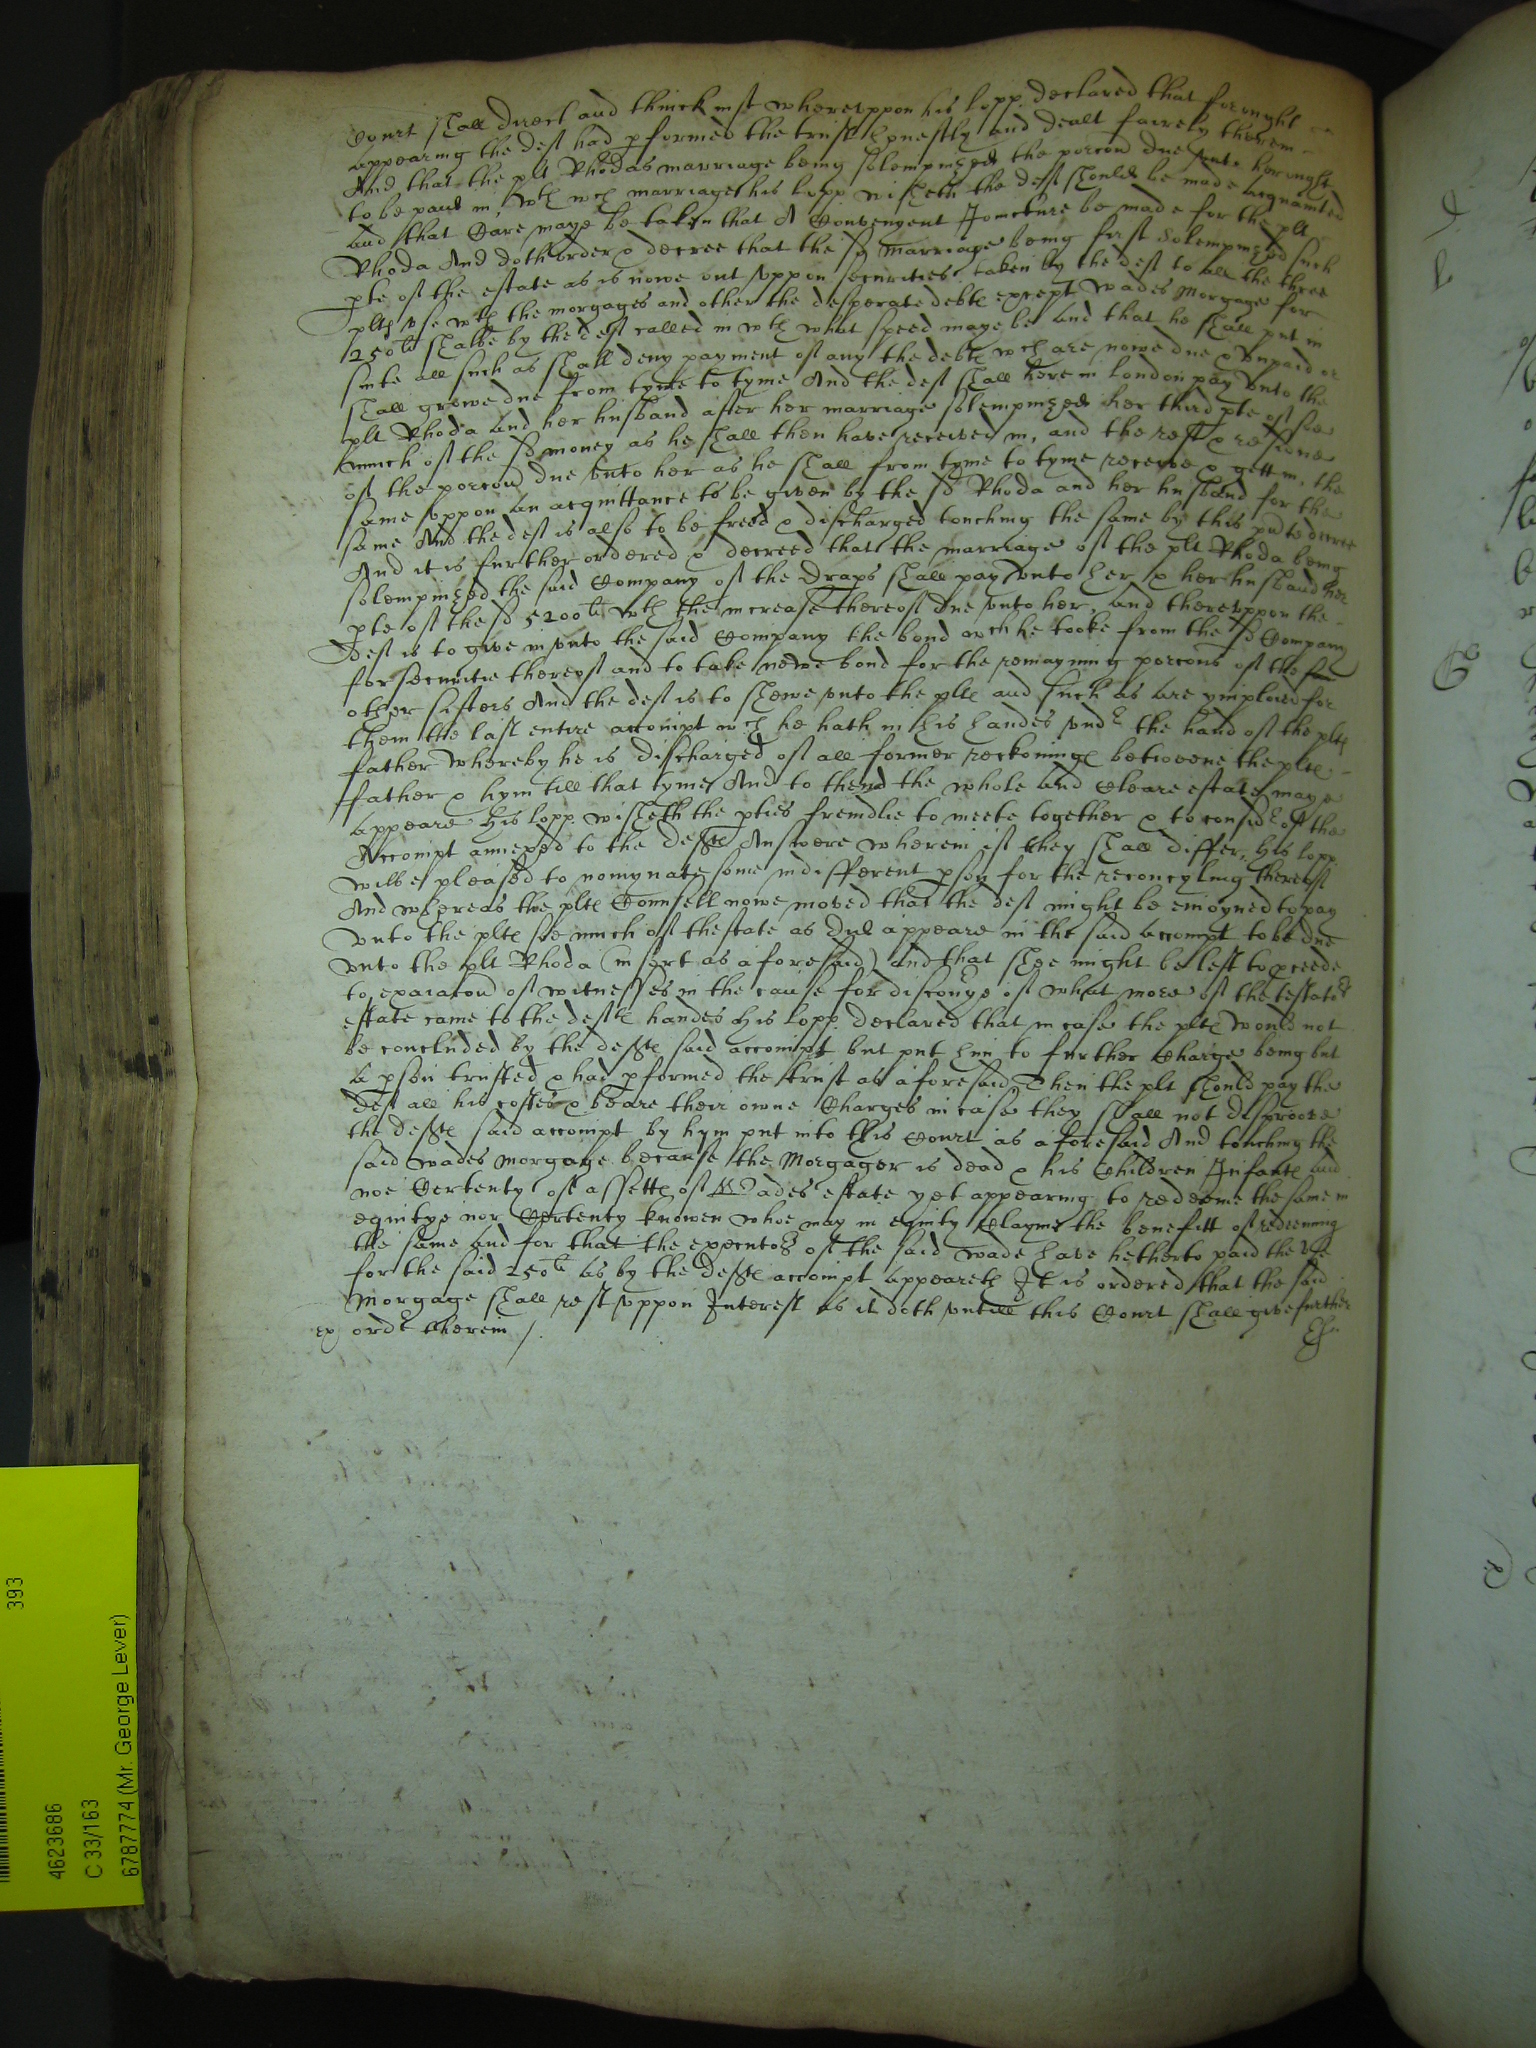 Court shall direct and thinck mete whereuppon his lopp declared that for ought
appearing the deft had pformed the trust honestly and dealt fairely therein
And that the plt Rhodas marriage being solempnized the porcon due unto her ought
to be paid in, wth wch marriage his lopp wisheth the deft should be made acquainted
and that Care maye be taken that A Convenyent Joincture be made for the plt
Rhoda And doth order & decree that the sd marriage being first solempnized such
pte of the estate as is nowe out uppon securities taken by the deft to all the three
pltes use wth the morgages and other the desperate debtes except wades Morgage for
250li shalbe by the deft called in wth what speed maye be and that he shall put in
suite all such as shall deny payment of any the debtes wch are nowe due & unpaid or
shall growe due from tyme to tyme And the deft shall here in london pay unto the
plt Rhoda and her husband after her marriage solempnized her third pte of soe
much of the sd money as he shall then have received in, and the rest & residue
of the porcon due unto her as he shall from tyme to tyme receive & gett in, the
same uppon an acquittance to be given by the sd Rhoda and her husband for the
same And the deft is also to be freed & discharged touching the same by this pnte decree
And it is further ordered & decreed that the marriage of the plt Rhoda being
solempnized the said Company of the Draps shall pay unto her & her husband her
pte of the sd 5200li wth the increase thereof due unto her, and thereuppon the
deft is to give in unto the said Company the bond wch he tooke from the sd Company
for securitie thereof and to take newe bond for the remayning porcons of the
other sisters And the deft is to shewe unto the pltes and such as are ymploied for
them the last entire accompt wch he hath in his handes undr the hand of the pltes
father whereby he is discharged of all former reckoninges betweene the pltes
father & hym till that tyme And to thend the whole and Cleare estate maye
appeare His lopp wisheth the pties freindlie to meete together & to considr of the
Accompt annexed to the deftes Answere wherein if they shall differ, His lopp
wilbe pleased to nomynate some indifferent pson for the reconcyling thereof
And whereas the pltes Counsell nowe moved that the deft might be enioyned to pay
unto the pltes soe much of thestate as dul appeare in the said accompt to be due
unto the plt Rhoda (in sort as aforesaid) and that shee might be left to pceede
to exaiacon of witnesses in the cause for discovye of what more of the testators
estate came to the deftes handes His lopp declared that in case the pltes would not
be concluded by the deftes said accompt but put him to further Charge being but
a pson trusted & had pformed the trust as aforesaid Then the plt should pay the
deft all his costes & beare their owne Charges in case they shall not disproove
the deftes said accompt by hym put into this Court as aforesaid And touching the
said wades Morgage because the Morgager is dead & his Children Infantes and
noe Certenty of assettes of Wades estate yet appearing to redeeme the same in
equitye nor Certenty knowen whoe may in equity Clayme the benefitt of redeeming
the same and for that the executors of the said wade have hetherto paid the use
for the said 250li as by the deftes accompt appeareth It is ordered that the said
Morgage shall rest uppon Interest as it doth untill this Court shall give further
ex) ordr therein /
4623686
C 33/163
6787774 (Mr. George Lever)
393